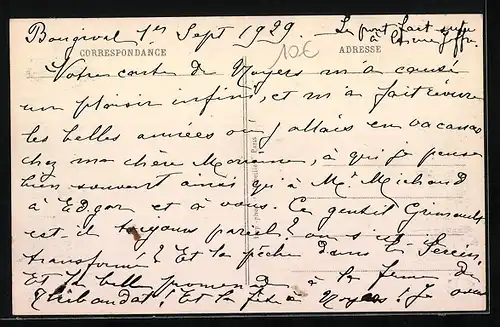 Bougival 1er Sept 1929. Le pont fait suite
à
10€
CORRESPONDANCE ADRESSE
Votre carte de Noyers m'a causé
un plaisir infini, et m'a fait revivre
les belles années où j'allais en vacances
chez ma chère Marraine, à qui je pense
bien souvent ainsi qu'à Mr Michaud
à Edgar et à vous. Ce gentil Grimault
est-il toujours pareil? ou s'est-il
transformé? Et la pêche dans le Serein
Et la belle promenade à la ferme de
Thibaudat! Et la fête à Noyers! Je